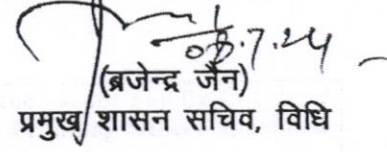 03.7.24
(ब्रजेन्द्र जैन)
प्रमुख शासन सचिव, विधि